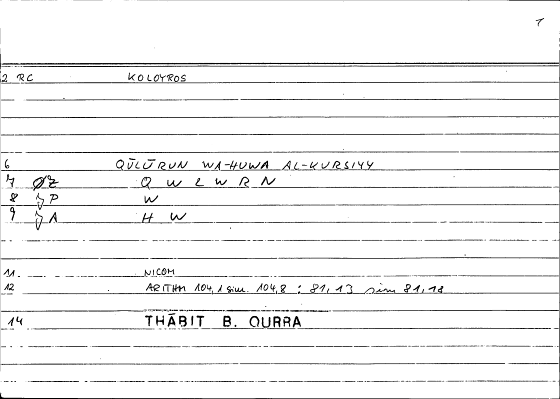 1
2 RC KOLOYROS
6 QŪLŪRUN WA-HUWA AL-KURSIYY
7 ØZ Q W L W R N
8 P W
9 A H W
11. NICOM
12 ARITHM 104,1 sim. 104,8 : 81,13 sim 81,18
14 THĀBIT B. QURRA